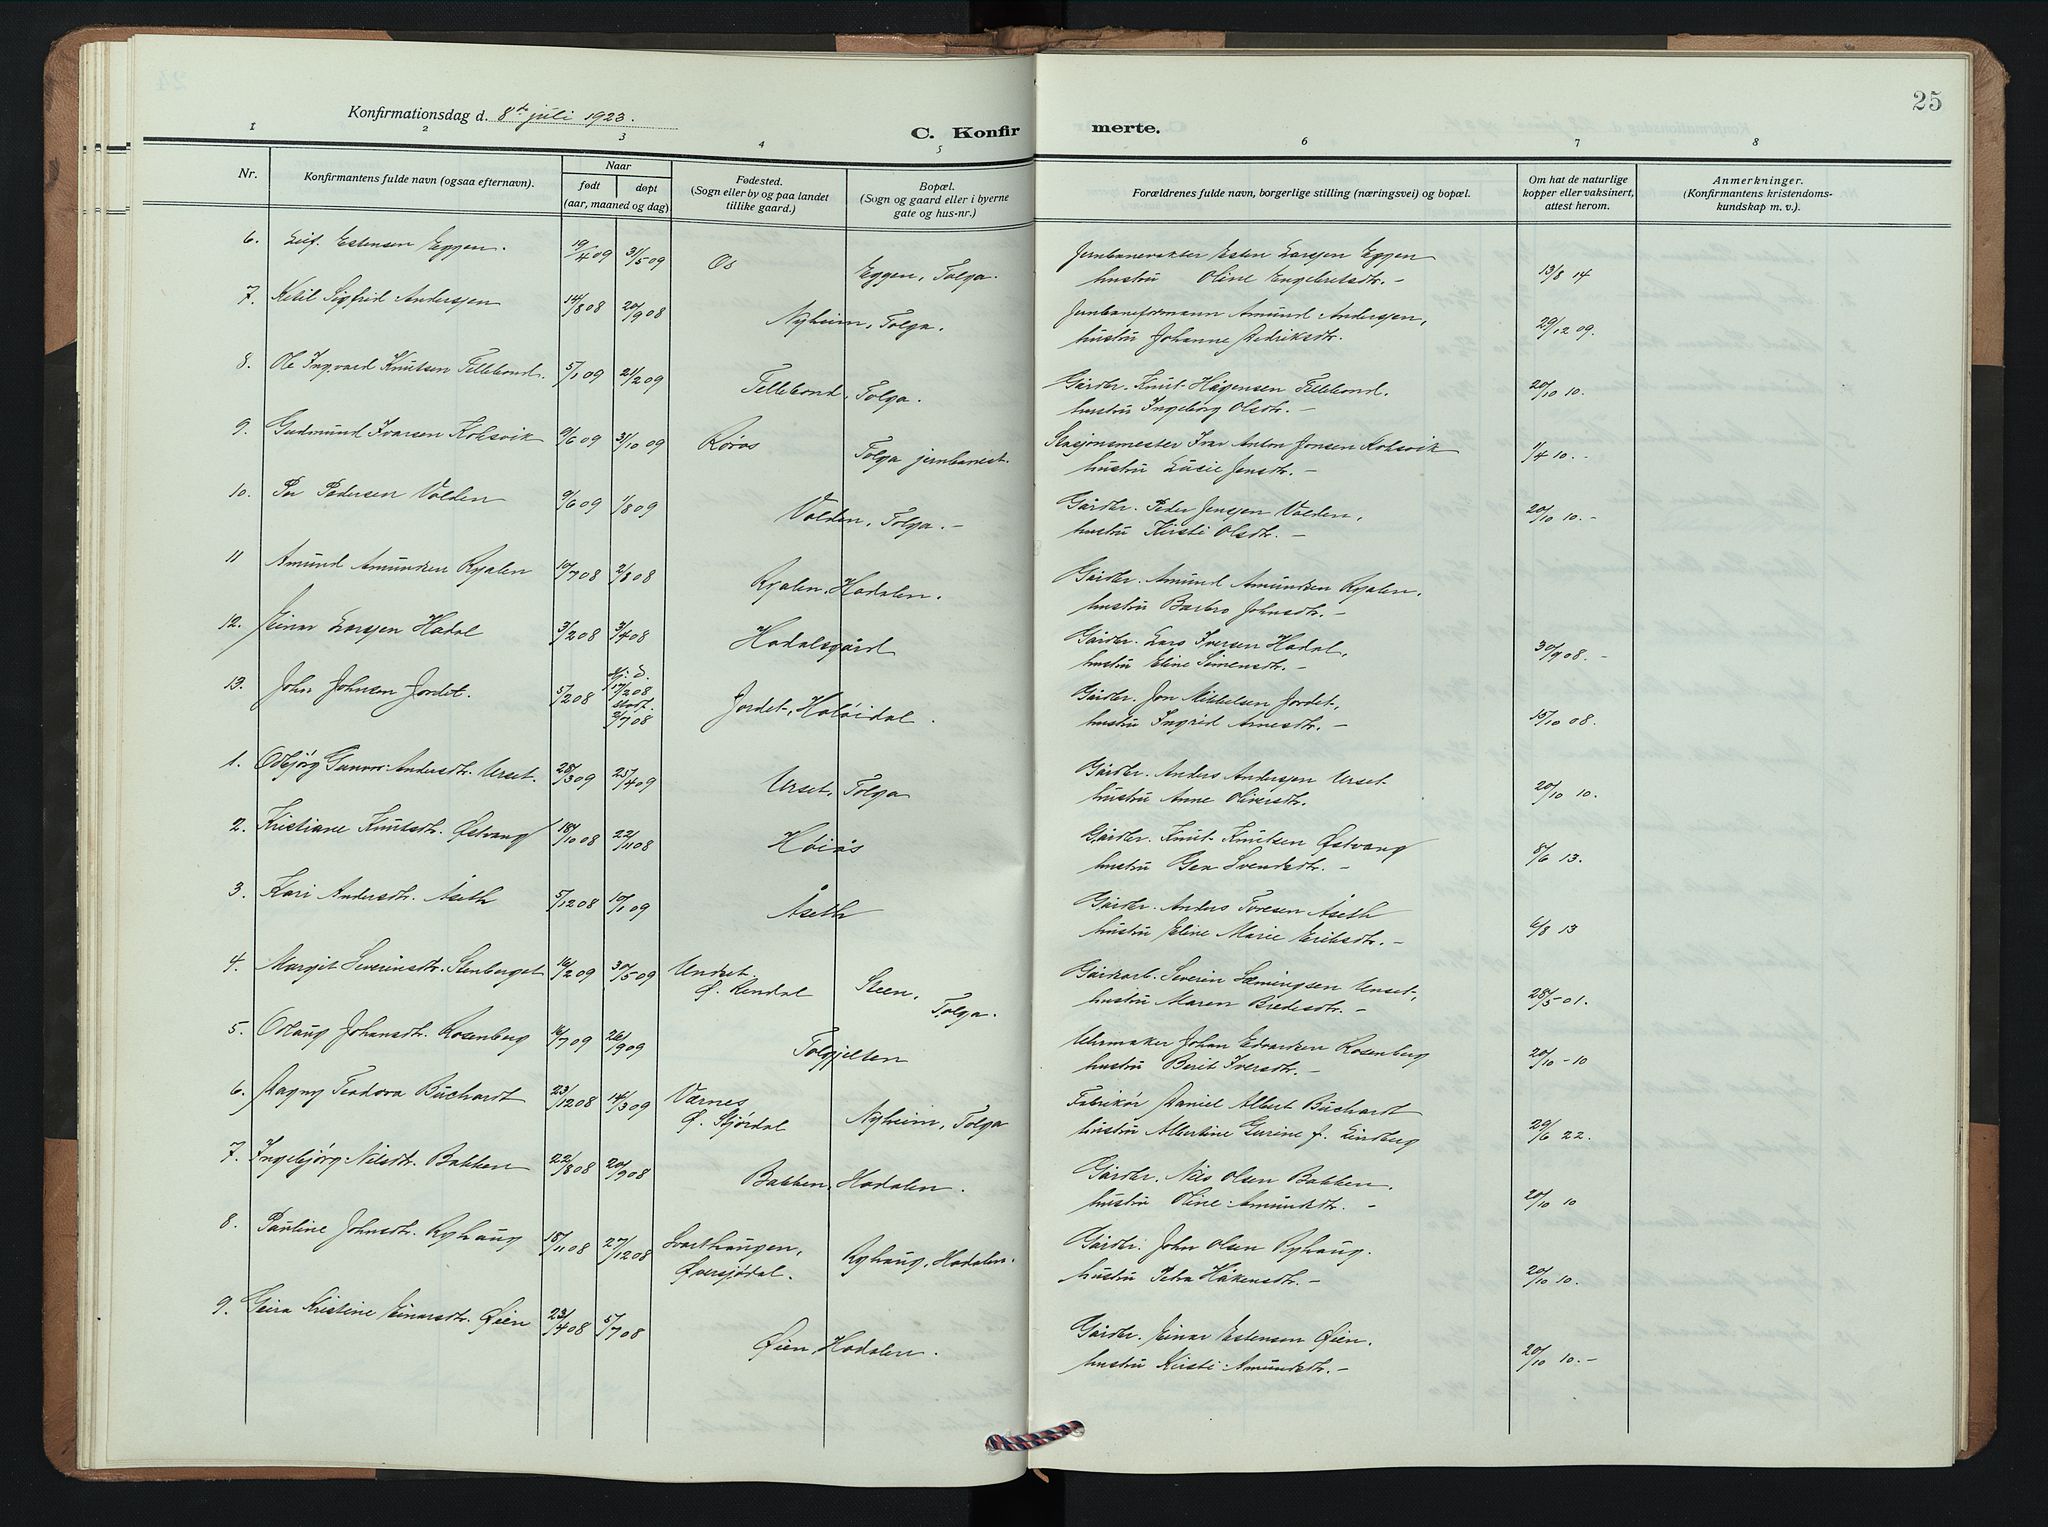 25
Konfirmationsdag d. 8de juli 1923.
C. Konfirmerte.
1 2 3 4 5 6 7 8
Nr. Konfirmantens fulde navn (ogsaa efternavn). Naar født døpt (aar, maaned og dag) Fødested. (Sogn eller by og paa landet tillike gaard.) Bopæl. (Sogn og gaard eller i byerne gate og hus-nr.) Forældrenes fulde navn, borgerlige stilling (næringsvei) og bopæl. Om hat de naturlige kopper eller vaksinert, attest herom. Anmerkninger. (Konfirmantens kristendomskundskap m. v.).
6. Leif Estensen Eggen. 19/4 09 31/5 09 Os Eggen, Tolga. Jernbanevakter Esten Larsen Eggen 13/8 14
hustru Oline Engebretsdtr. -
7. Ketil Sigfrid Andersen 14/8 08 20/9 08 Nyheim, Tolga. Jernbaneformann Amund Andersen, 29/12 09.
hustru Johanne Pedriksdtr.
8. Ole Ingvard Knutsen Tellebond. 5/1 09 21/2 09 Tellebond, Tolga. Gårdbr. Knut Hågensen Tellebond. 20/10 10.
hustru Ingeborg Olsdtr. -
9. Gudmund Ivarsen Koksvik 9/6 09 31/10 09 Røros Tolga jernbanest. Stasjonsmester Ivar Anton Jonsen Koksvik 1/4 10. -
hustru Lusie Jensdtr. -
10. Per Pedersen Volden 9/6 09 1/8 09 Volden, Tolga. - Gårdbr. Peder Jenssen Volden, 20/10 10. -
hustru Kirsti Olsdtr. -
11 Amund Amundsen Ryalen 10/7 08 2/8 08 Ryalen, Hodalen. Gårdbr. Amund Amundsen Ryalen.
hustru Barbro Johnsdtr. -
12. Einar Larssen Hodal 3/2 08 3/4 08 Hodalsgård Gårdbr. Lars Iversen Hodal, 30/9 08. -
hustru Eline Simensdtr. -
13. John Johnsen Jordet. 5/2 08 hj. d. 17/2 08 stadf. 2/7 08 Jordet, Holøidal. Gårdbr. Jon Mikkelsen Jordet, 15/10 08.
hustru Ingrid Arnesdtr. -
1. Obbjørg Gunvor Andersdtr. Urset. 28/3 09 25/4 09 Urset, Tolga Gårdbr. Anders Andersen Urset 20/10 10.
hustru Anne Oliversdtr.
2. Kristiane Knutsdtr. Østvang 18/10 08 22/11 08 Høiås Gårdbr. Knut Knutsen Østvang 8/6 13.
hustru Gea Svendsdtr. -
3. Kari Andersdtr. Åseth 5/12 08 10/1 09 Åseth Gårdbr. Anders Toresen Åseth 6/8 13
hustru Eline Marie Eriksdtr. -
4. Margit Severinsdtr. Stenberget 16/2 09 30/5 09 Undset. Ø. Rendal Steen, Tolga. Gårdarb. Severin Lemingsen Unset, 28/5 01.
hustru Maren Bredesdtr. -
5. Oddaug Johansdtr. Rosenberg 16/7 09 26/9 09 Tolgjelten Uhrmaker Johan Edvardsen Rosenberg 20/10 - 10
hustru Berit Iversdtr. -
6. Dagny Teodora Buchardt 23/12 08 14/3 09 Værnes Ø. Stjørdal Nyheim, Tolga Fabrikør Daniel Albert Buchardt 29/6 22.
hustru Albertine Gurine f. Lindberg
7. Ingebjørg Nilsdtr. Bakken 22/8 08 20/9 08 Bakken, Hodalen. Gårdbr. Nils Olsen Bakken. 20/10 10
hustru Oline Amundsdtr. -
8. Pauline Johnsdtr. Ryhaug 15/11 08 27/12 08 Svarthaugen, Øversjødal. Ryhaug, Hodalen. Gårdbr. John Olsen Ryhaug. 20/10 10.
hustru Petra Håkensdtr. -
9. Geira Kristine Einarsdtr. Øien 23/4 08 5/7 08 Øien, Hodalen. Gårdbr. Einar Estensen Øien. 20/10 10. -
hustru Kirsti Amundsdtr. -